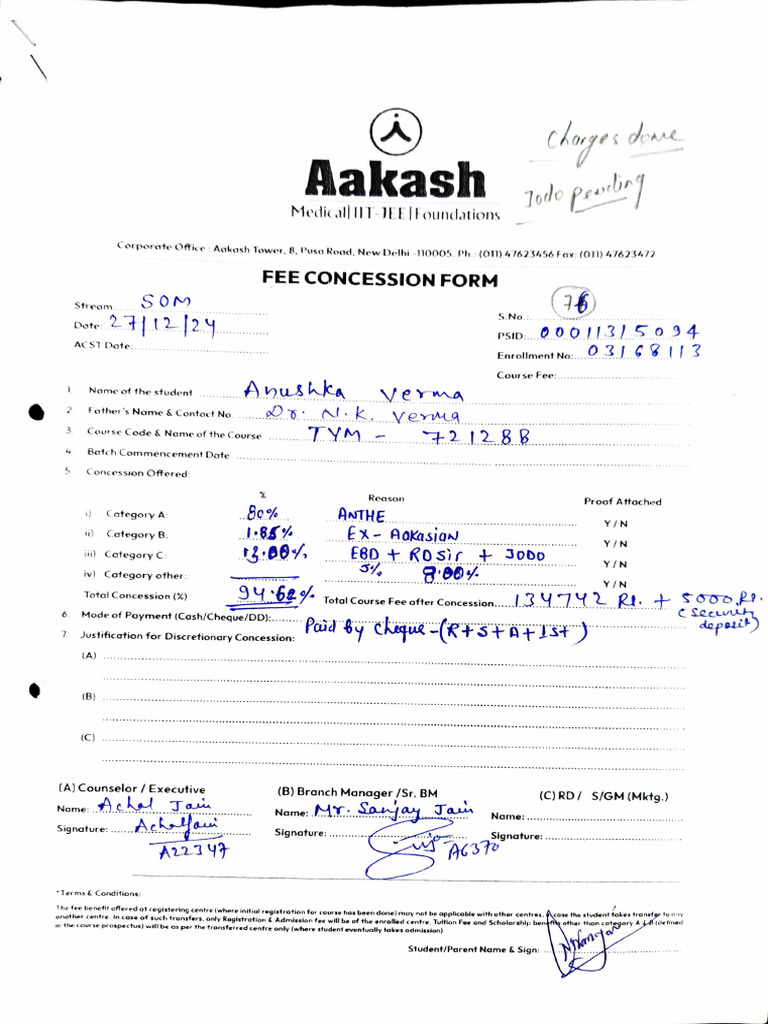 Charges done
Jodo pending
Aakash
Medical|IIT-JEE|Foundations
Corporate Office : Aakash Tower, 8, Pusa Road, New Delhi -110005. Ph.: (011) 47623456 Fax: (011) 47623472
FEE CONCESSION FORM
Stream: SOM
76
S.No.
Date: 27/12/24
PSID: 00011315094
ACST Date:
Enrollment No: 03168113
Course Fee:
1. Name of the student Anushka Verma
2. Father's Name & Contact No. Dr. N.K. Verma
3. Course Code & Name of the Course TYM - 721288
4. Batch Commencement Date
5. Concession Offered:
% Reason Proof Attached
i) Category A: 80% ANTHE Y / N
ii) Category B: 1.85% EX-AAkasian Y / N
iii) Category C: 13.00% EBD + RDSir + JODO Y / N
5% 8.00%
iv) Category other: Y / N
Total Concession (%) 94.62% Total Course Fee after Concession 134742 Rs. + 5000 Rs.
(security deposit)
6. Mode of Payment (Cash/Cheque/DD): Paid by Cheque-(R+S+A+1st)
7. Justification for Discretionary Concession:
(A)
(B)
(C)
(A) Counselor / Executive (B) Branch Manager /Sr. BM (C) RD / S/GM (Mktg.)
Name: Achal Jain Name: Mr. Sanjay Jain Name:
Signature: Achal Jain Signature: Signature:
A22347 A6370
*Terms & Conditions:
The fee benefit offered at registering centre (where initial registration for course has been done) may not be applicable with other centres. In case the student takes transfer to any
another centre. In case of such transfers, only Registration & Admission fee will be of the enrolled centre, Tuition Fee and Scholarship benefits other than category A & B (defined
in the course prospectus) will be as per the transferred centre only (where student eventually takes admission)
Student/Parent Name & Sign: